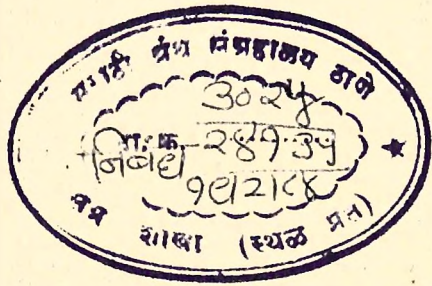 मराठी ग्रंथ संग्रहालय ठाणे
३०२५
निबंध २४१.३५
१९/२/८४
शाखा (स्थळ प्रत)